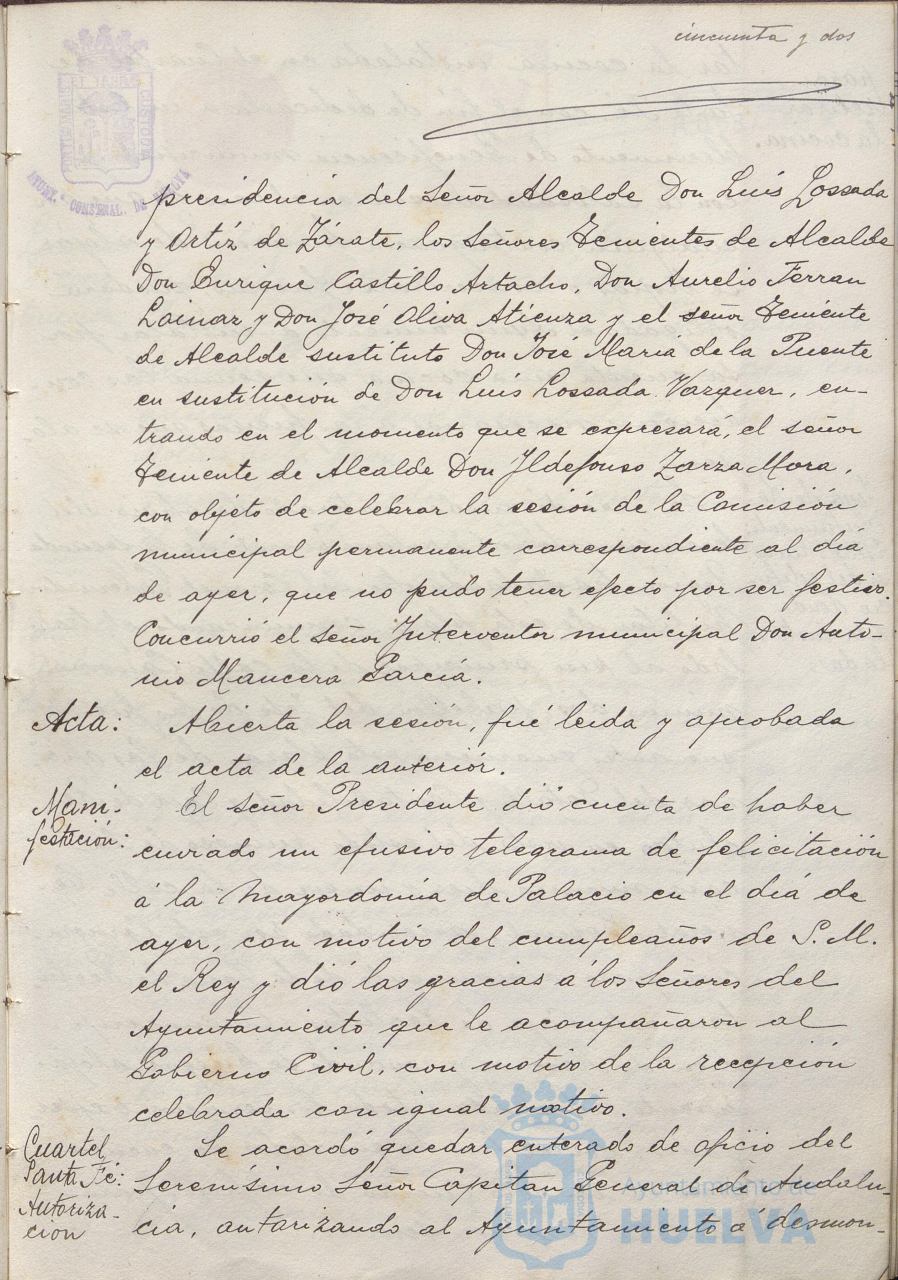 cincuenta y dos
presidencia del Señor Alcalde Don Luís Lossada
y Ortíz de Zárate, los Señores Tenientes de Alcalde
Don Enrique Castillo Artacho, Don Aurelio Ferran
Lainar y Don José Oliva Atienza y el señor Teniente
de Alcalde sustituto Don José María de la Puente
en sustitución de Don Luís Lossada Vazquer, en-
trando en el momento que se expresará, el señor
Teniente de Alcalde Don Yldefonso Zarza Mora,
con objeto de celebrar la sesión de la Comisión
municipal permanente correspondiente al diá
de ayer, que no pudo tener efecto por ser festivo.
Concurrió el señor Interventor municipal Don Anto-
nio Mancera García.
Acta: Abierta la sesión, fué leida y aprobada
el acta de la anteriór.
Mani-
festación:
El señor Presidente dió cuenta de haber
enviado un efusivo telegrama de felicitación
á la Mayordomía de Palacio en el diá de
ayer, con motivo del cumpleaños de S. M.
el Rey y dió las gracias á los Señores del
Ayuntamiento que le acompañaron al
Gobierno Civil, con motivo de la recepción
celebrada con igual motivo.
Cuartel
Santa Fé:
Autoriza-
ción
Se acordó quedar enterado de oficio del
Serenísimo Señor Capitan General de Andalu-
cia, autorizando al Ayuntamiento á desmon-
Ayuntamiento de
HUELVA